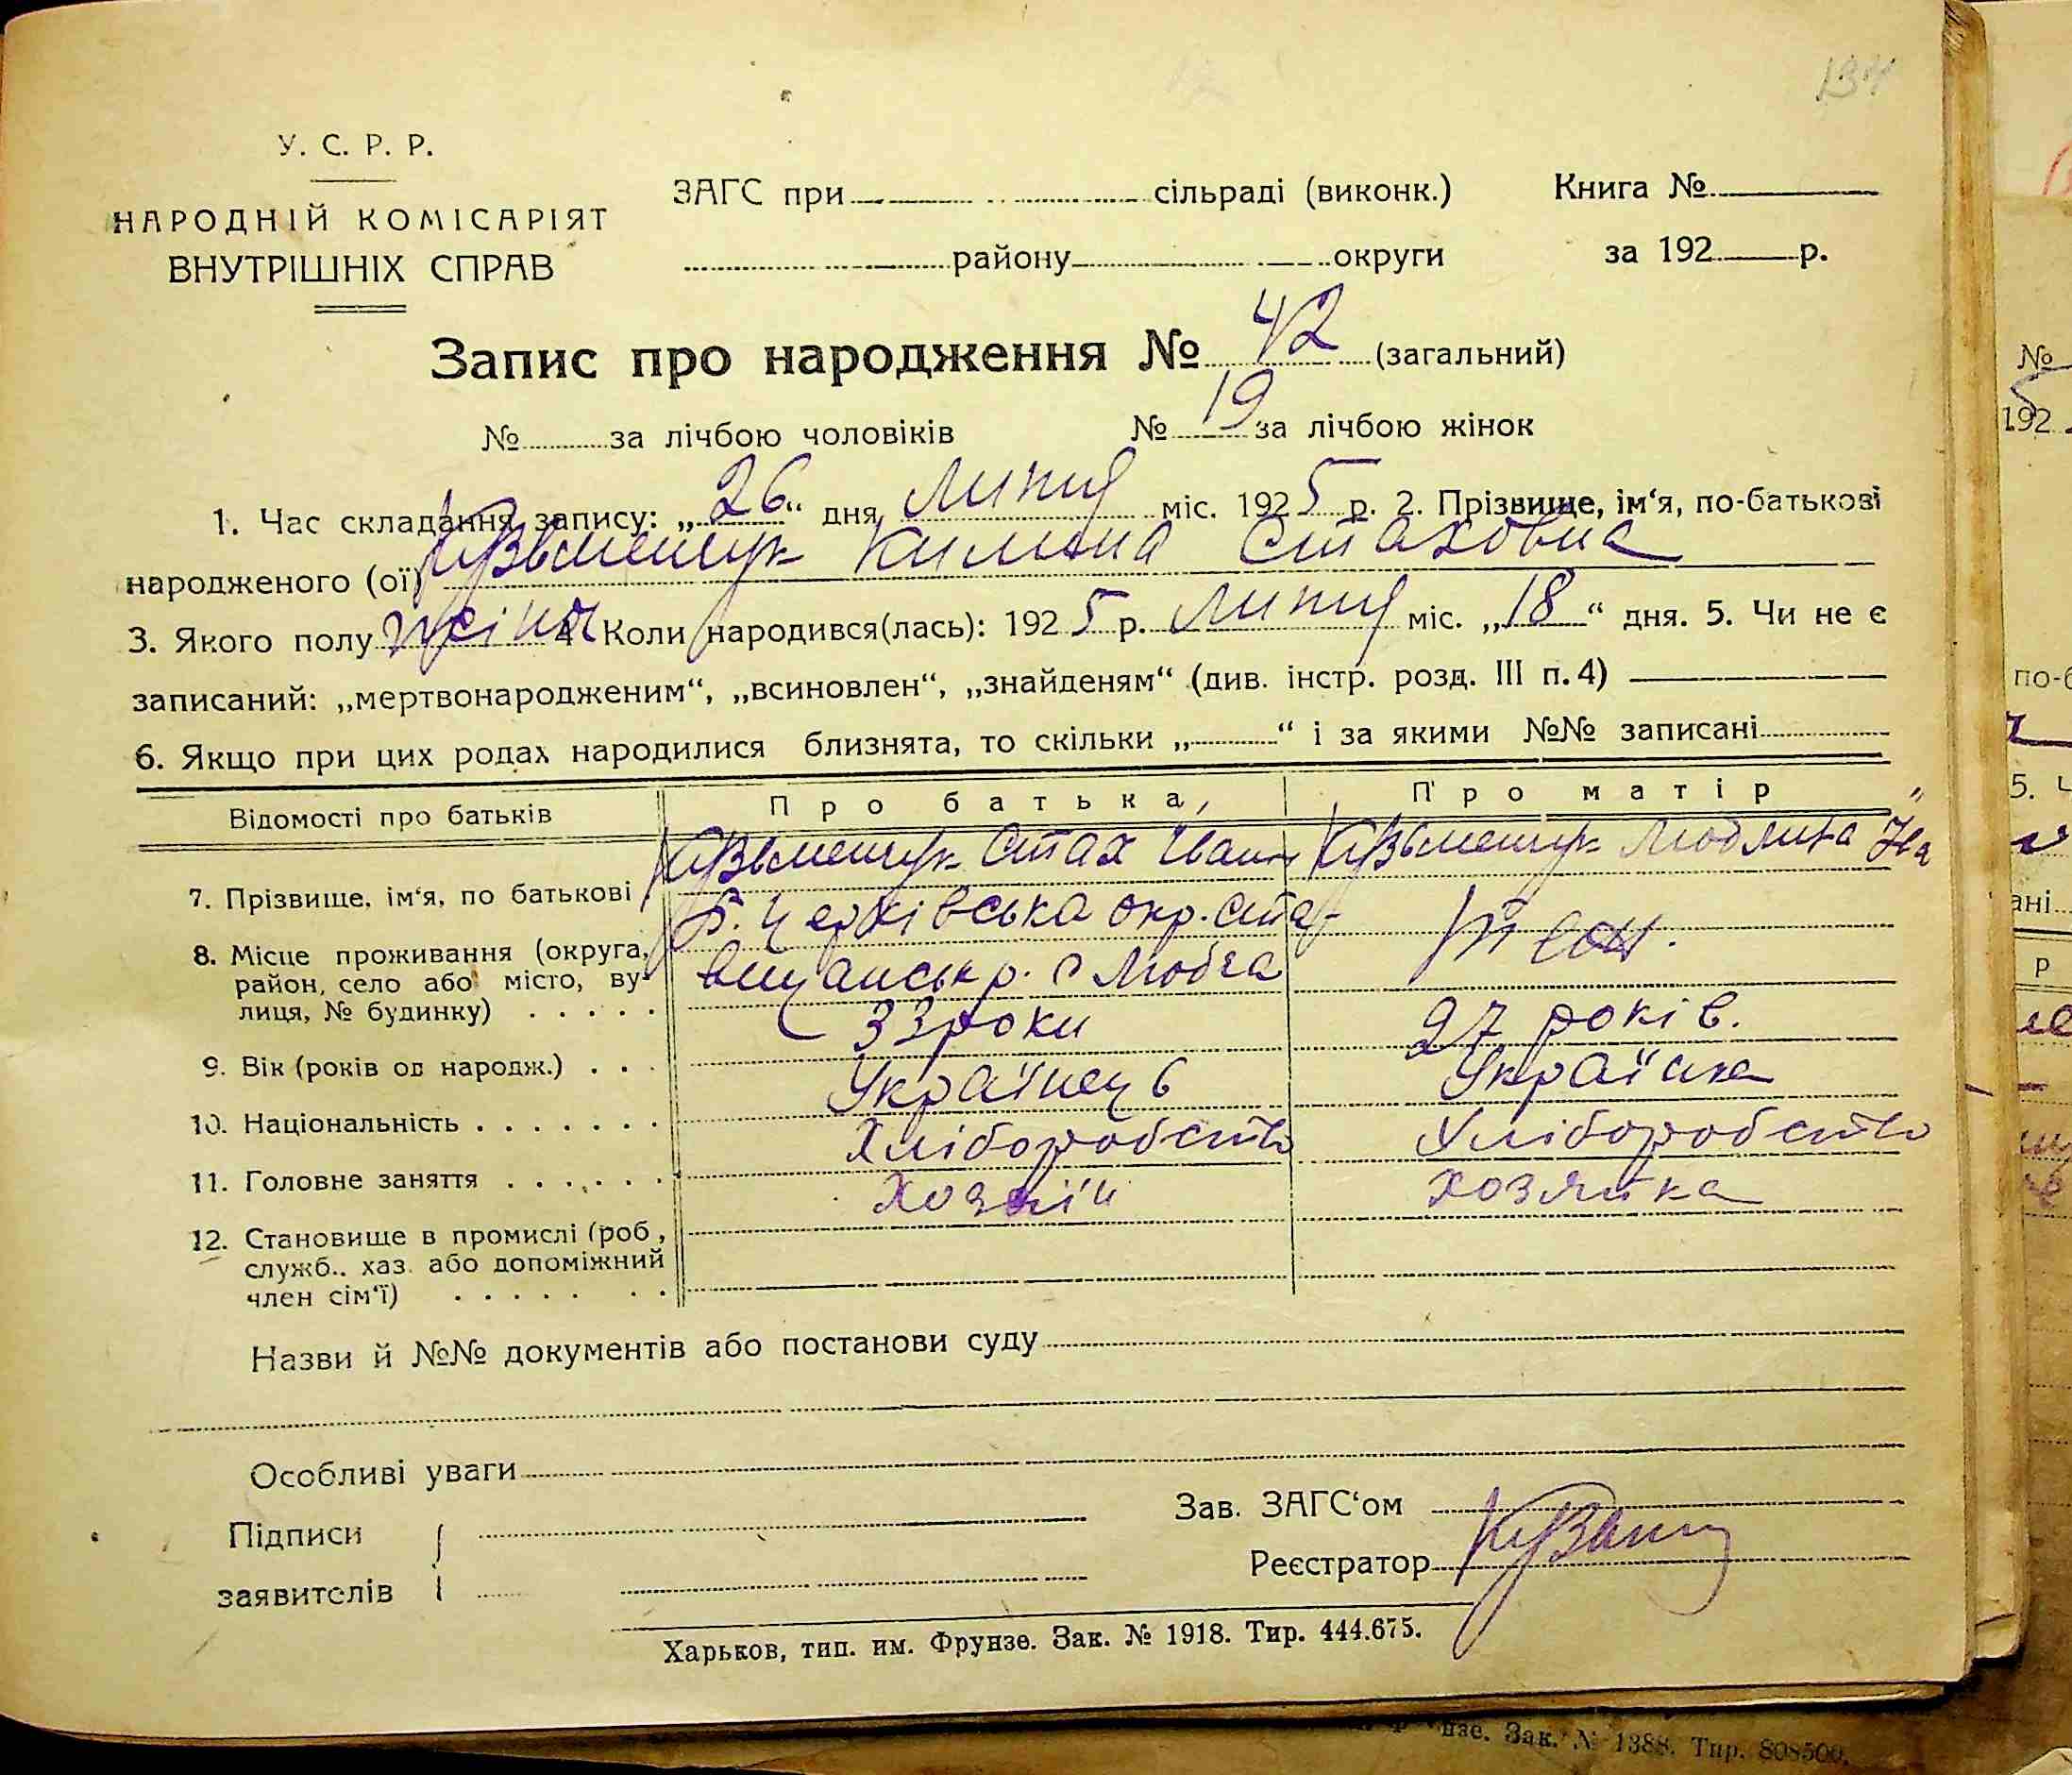 134
У. С. Р. Р.
НАРОДНІЙ КОМІСАРІЯТ
ВНУТРІШНІХ СПРАВ
ЗАГС при сільраді (виконк.)
району округи
Книга №
за 192 р.
Запис про народження № 42 (загальний)
№ за лічбою чоловіків № 19 за лічбою жінок
1. Час складання запису: „26“ дня липня міс. 1925 р. 2. Прізвище, ім‘я, по-батькові
народженого (ої) Кузьменчук Килина Стаховна
3. Якого полу жіноч 4. Коли народився(лась): 1925 р. липня міс. „18“ дня. 5. Чи не є
записаний: „мертвонародженим“, „всиновлен“, „знайденям“ (див. інстр. розд. III п. 4)
6. Якщо при цих родах народилися близнята, то скільки „ “ і за якими №№ записані
Відомості про батьків Про батька, Про матір
7. Прізвище, ім‘я, по батькові Кузьменчук Стах Іван Кузьменчук Іва
8. Місце проживання (округа, район, село або місто, вулиця, № будинку)
Б. Церківська окр. Ста-
вищанськ р. с Любча
9. Вік (років од народж.) 33 роки 27 років.
10. Національність Українець Українка
11. Головне заняття Хліборобство Хліборобство
Хозяїн Хозяйка
12. Становище в промислі (роб., служб., хаз. або допоміжний член сім‘ї)
Назви й №№ документів або постанови суду
Особливі уваги
Підписи
заявителів
Зав. ЗАГС‘ом
Реєстратор
Харьков, тип. им. Фрунзе. Зак. № 1918. Тир. 444.675.
Зак. № 1388. Тир. 808500.